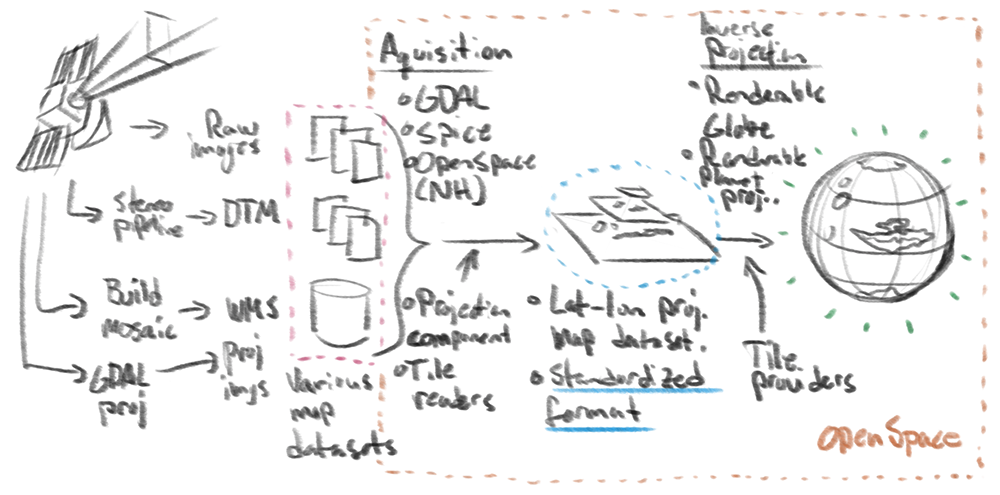 Raw
images
stereo
pipeline
DTM
Build
mosaic
WMS
GDAL
proj
proj
imgs
Various
map
datasets
Aquisition
GDAL
Spice
OpenSpace
(NH)
Projection
component
Tile
readers
Lat-lon proj.
Map dataset.
Standardized
format
Inverse
projection
Renderable
Globe
Renderable
planet
proj..
Tile
providers
OpenSpace